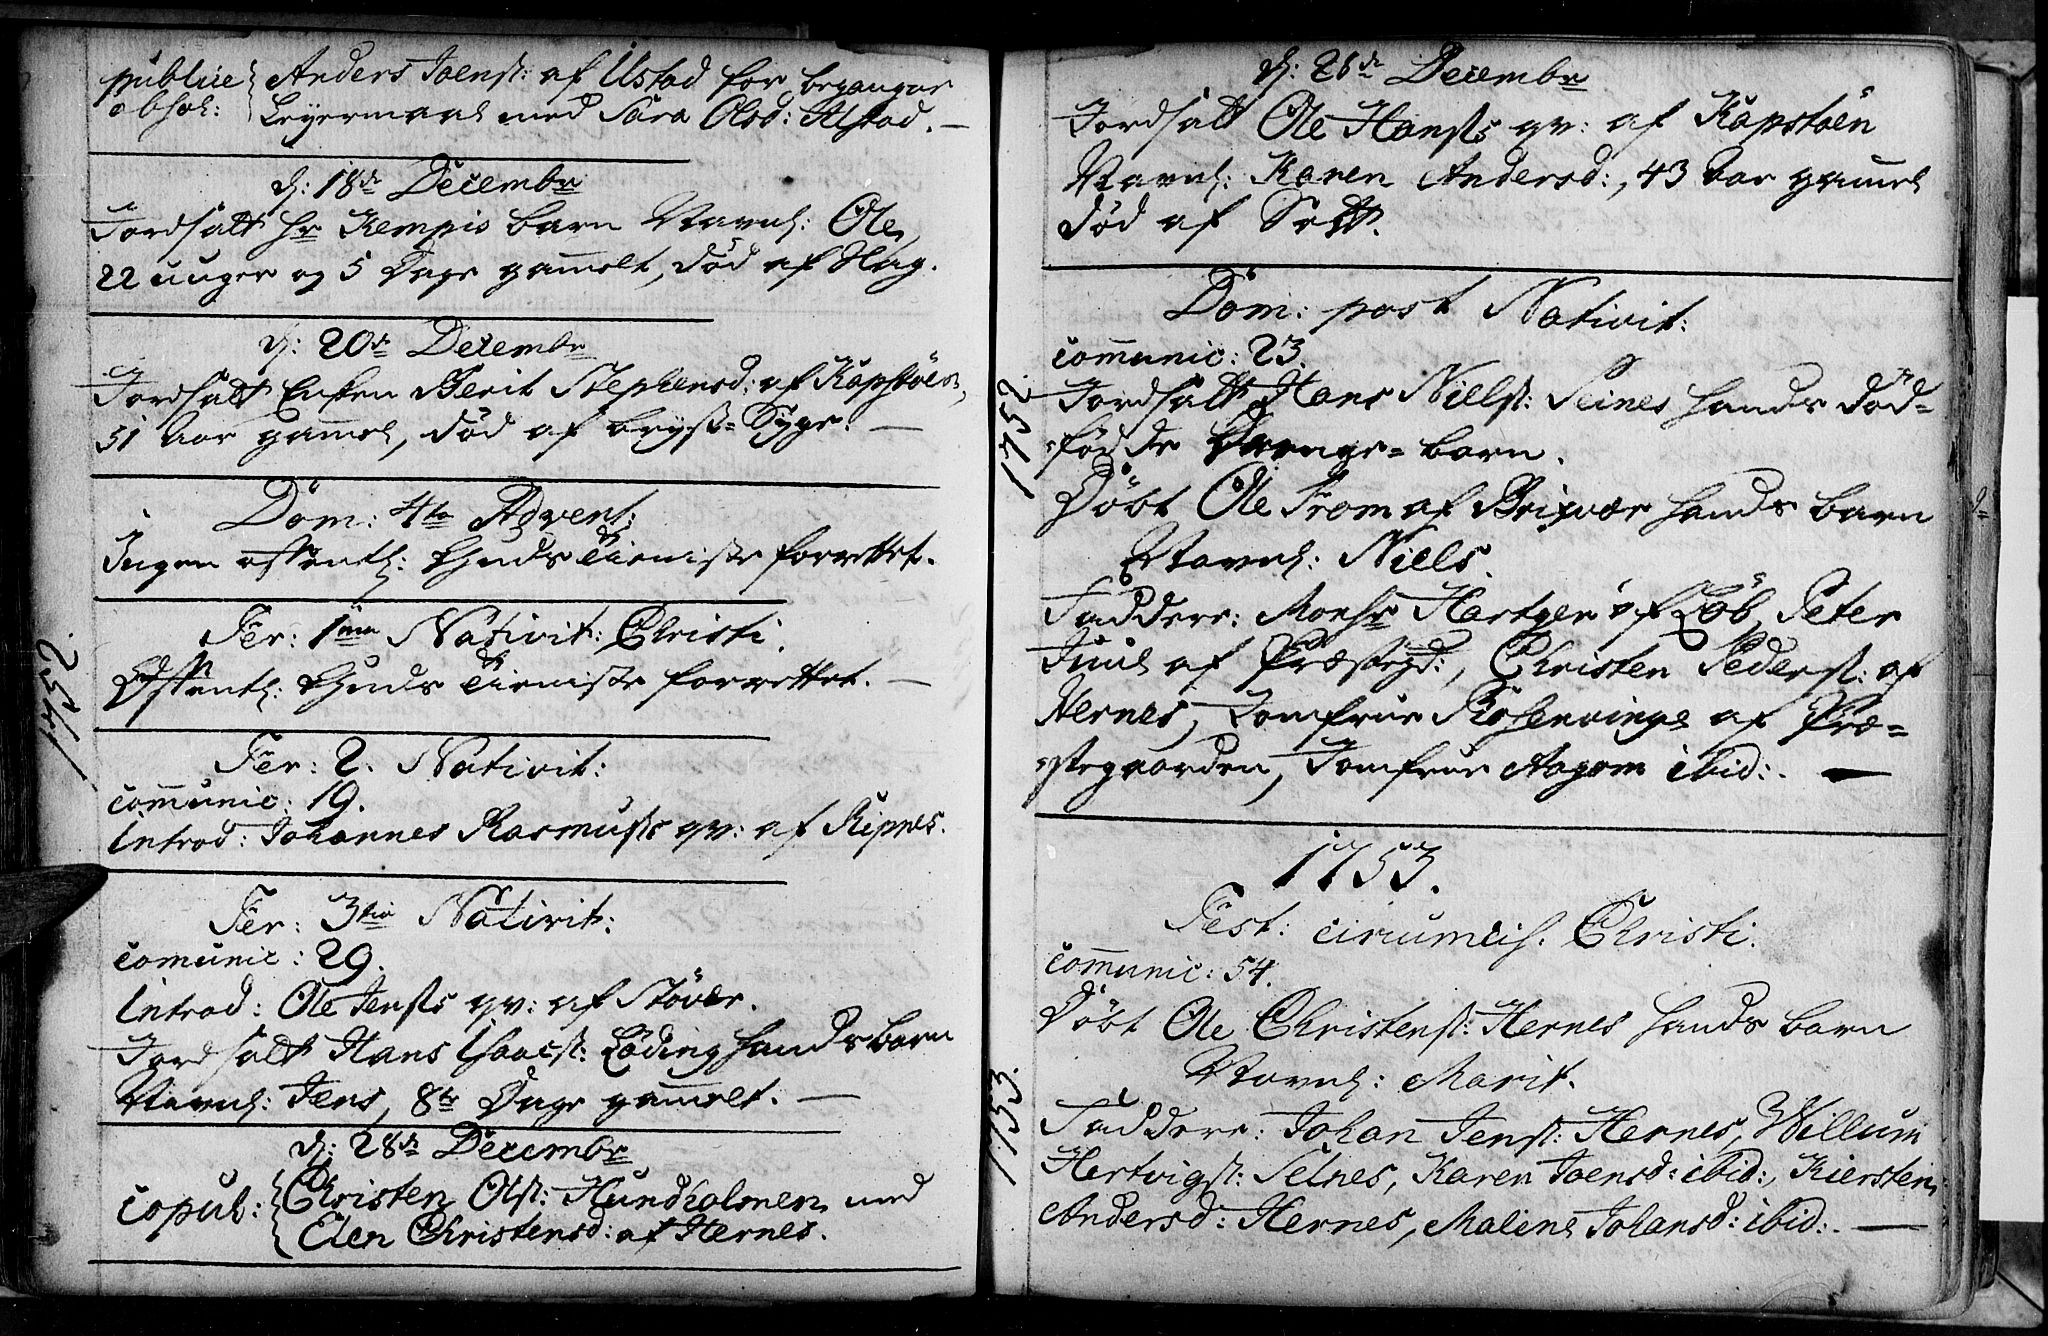 publice obsol: { Anders Joensn: af Ustad for begangne
Leyermaal med Sara Olsd: Alstad. —
d: 18de Decembr
Jordfalt Hr Kempis barn Navnl: Ole,
22 uuger og 5 Dage gammelt, død af Hag.
d: 20de Decembr
Jordfalt Enken Berit Stephensd: af Kapstöen,
51 Aar gammel, død af bryst-Syge. —
Dom: 4ta Advent:
Ingen offentl: Guds Tieniste forrettet.
Fer: 1ma Nativit: Christi.
Offentl: Guds Tieniste forrettet. —
1752.
Fer: 2. Nativit:
communic: 19.
introd: Johannes Rasmuss qv: af Ripnes.
Fer: 3tia Nativit:
comunic: 29.
introd: Ole Jenss qv: af Støver.
Jordfalt Hans Isaacs: Löding hands barn
Navnl: Jens, 8te Dage gammelt. —
d: 28de Decembr
copul: { Christen Ols: Hundholmen med
Elen Christensd: af Hernes.
d: 28de Decembr
Jordfalt Ole Hanss qv: af Kapstöen
Navnl: Karen Andersd:, 43 Aar gammel
død af Sott.
Dom: post Nativit:
communic: 23.
1752.
Jordfalt Hans Niells: Seines hands død-
fødde Drenge-barn.
Døbt Ole From af Brixvær hands barn
Navnl: Niells.
Faddere: Monsr Hertzer af Löb, Peter
Juul af Præstegd:, Christen Peders: af
Hernes, Jomfrue Rosenvinge af Præ-
stegaarden, Jomfrue Aagom ibid:. —
1753.
Fest: circumcis. Christi.
communic: 54.
Døbt Ole Christens: Hernes hands barn
Navnl: Marit.
1753.
Faddere: Johan Jens: Hernes, Willum
Hertvigs: Seines, Karen Joensd: ibid:, Kiersten
Andersd: Hernes, Malene Johansd: ibid:. —